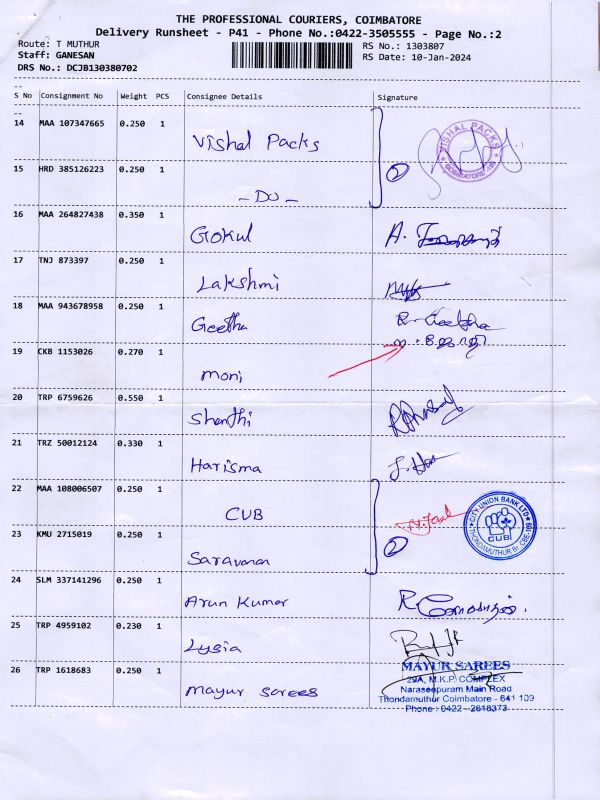 THE PROFESSIONAL COURIERS, COIMBATORE
Delivery Runsheet - P41 - Phone No.:0422-3505555 - Page No.:2
Route: T MUTHUR RS No.: 1303807
Staff: GANESAN RS Date: 10-Jan-2024
DRS No.: DCJB130380702
S No Consignment No Weight PCS Consignee Details Signature
14 MAA 107347665 0.250 1 Vishal Packs
VISHAL PACKS
15 HRD 385126223 0.250 1 - Do - 2
16 MAA 264827438 0.350 1 Gokul A.
17 TNJ 873397 0.250 1 Lakshmi
18 MAA 943678958 0.250 1 Geetha R. Geetha
19 CKB 1153026 0.270 1 moni
20 TRP 6759626 0.550 1 Shanthi
21 TRZ 50012124 0.330 1 Harisma
22 MAA 108006507 0.250 1 CUB
CITY UNION BANK LTD
CUB
THONDAMUTHUR Br. CBE-109
23 KMU 2715019 0.250 1 Saravanan 2
24 SLM 337141296 0.250 1 Arun Kumar
25 TRP 4959102 0.230 1 Lysia
26 TRP 1618683 0.250 1 Mayur sarees
MAYUR SAREES
29A, M.K.P. COMPLEX
Naraseepuram Main Road
Thondamuthur Coimbatore - 641 109
Phone : 0422 - 2618373